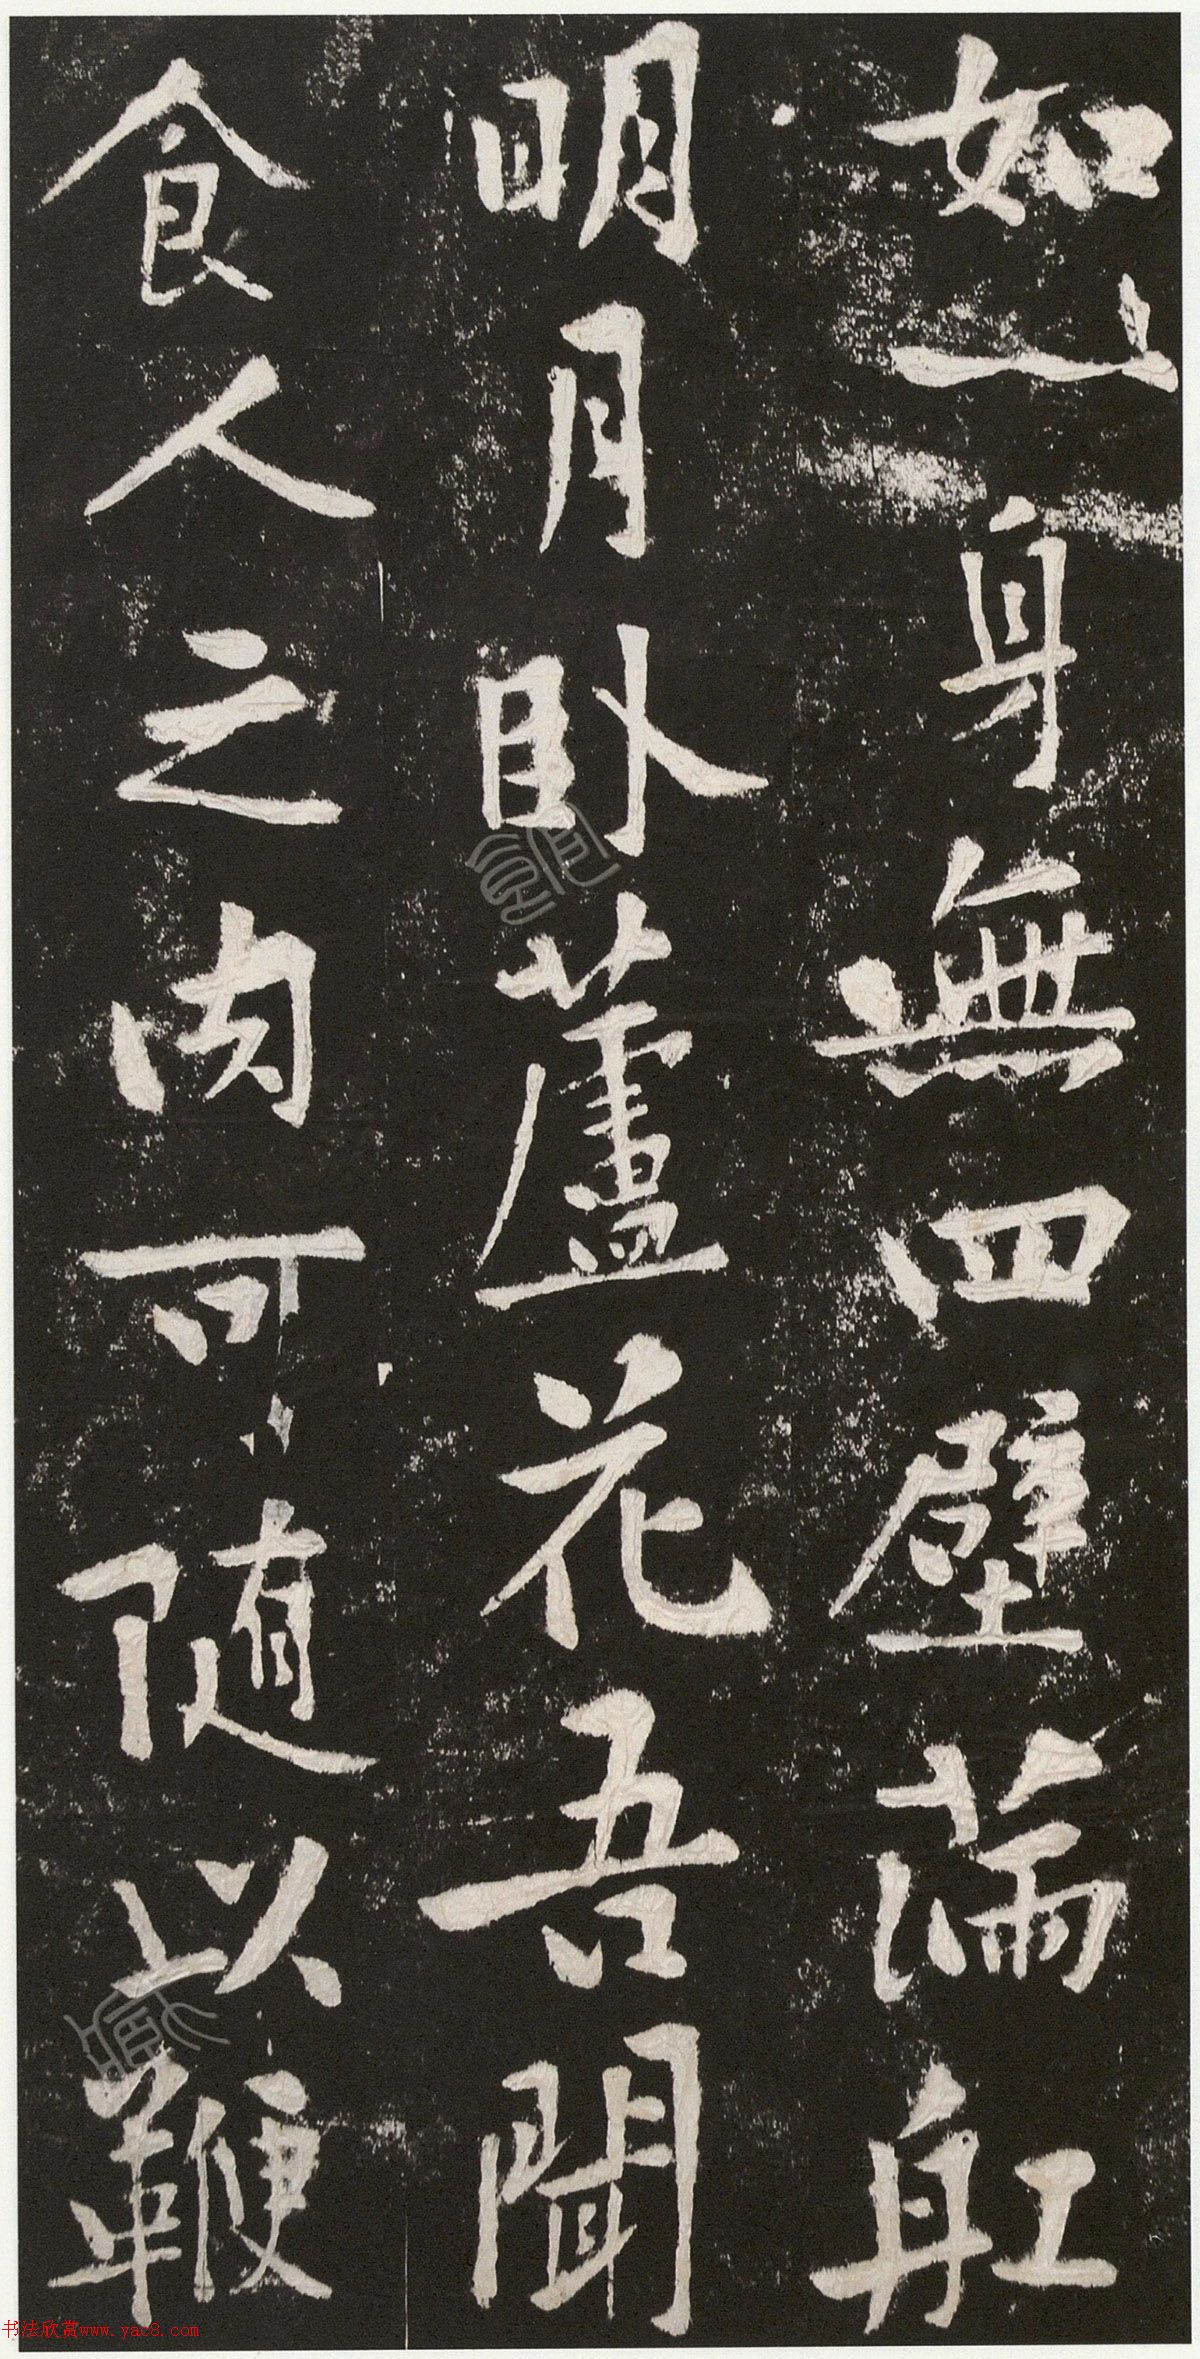 如一身無四壁滿舡
明月卧蘆花吾聞
食人之肉可隨以鞭
书法欣赏www.yac8.com